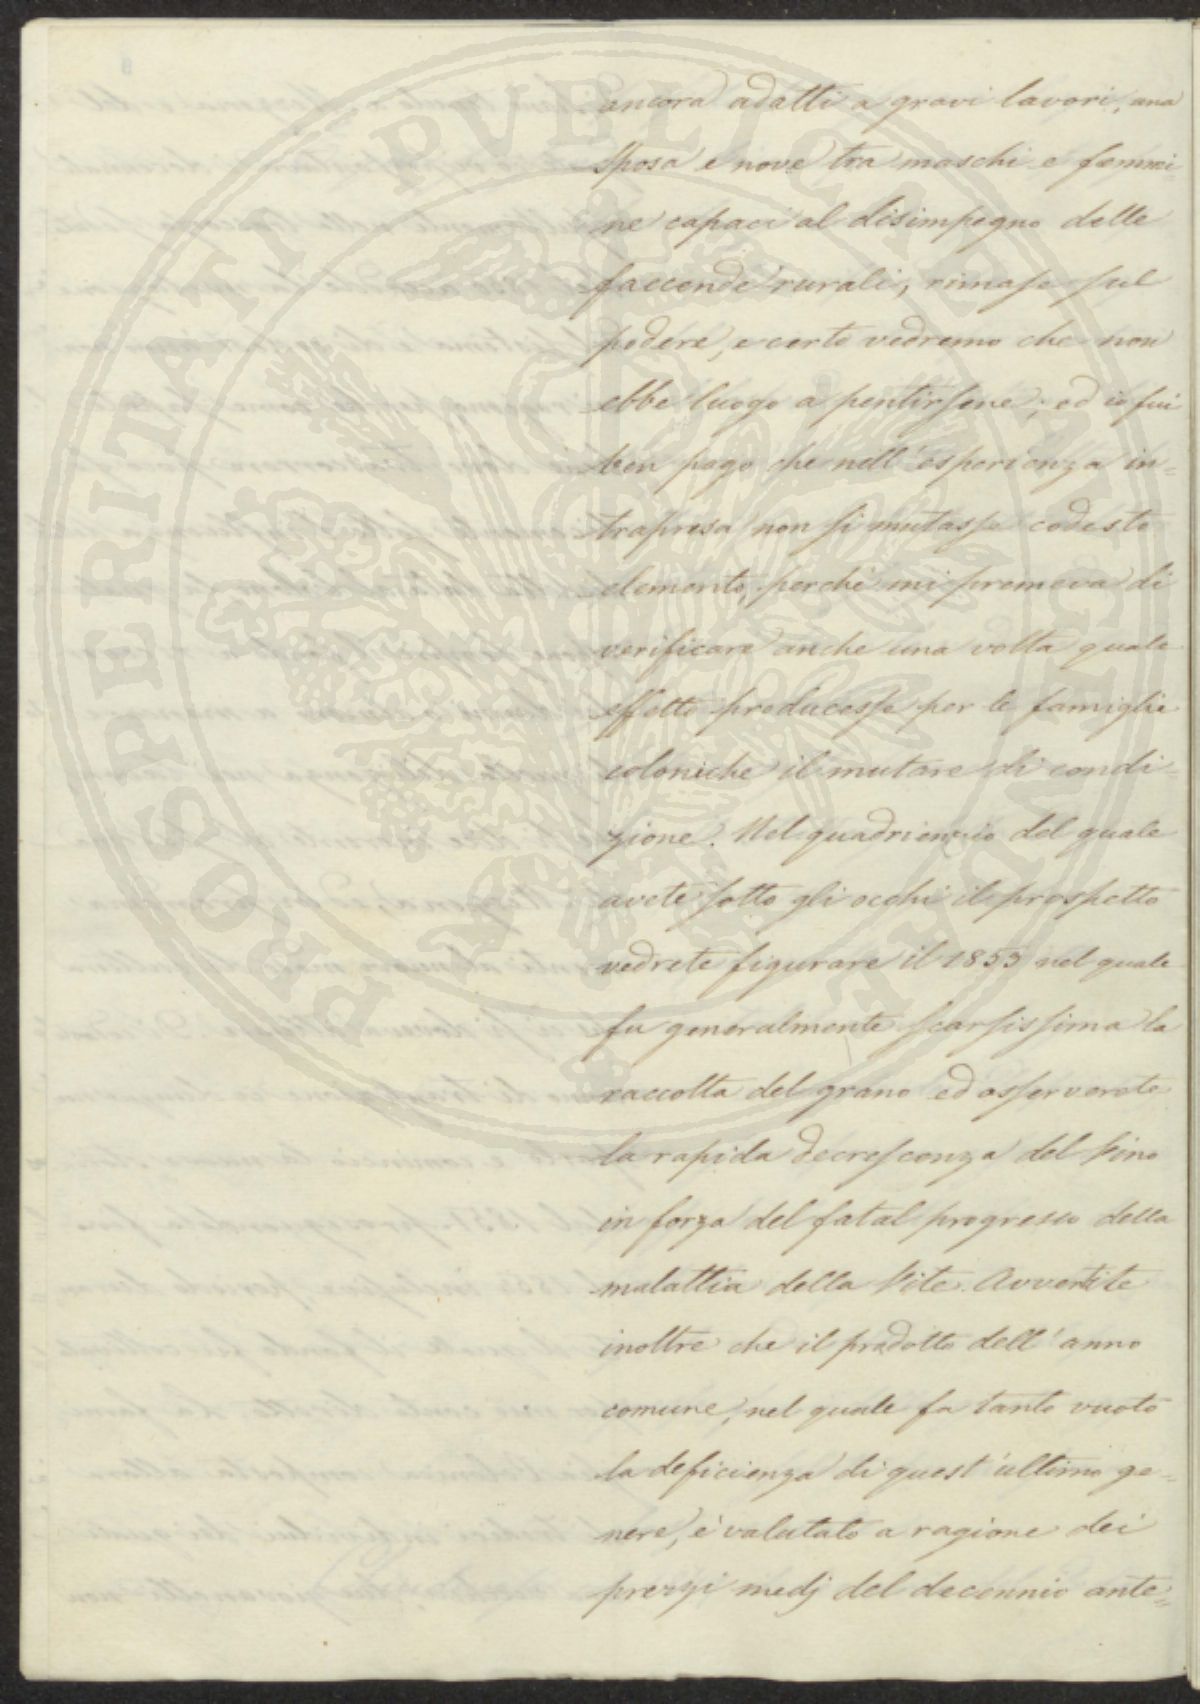 ancora adatti a gravi lavori, una
sposa e nove tra maschi e femmi-
ne capaci al disimpegno delle
faccende rurali, rimase sul
podere, e certo vedremo che non
ebbe luogo a pentirsene; ed io fui
ben pago che nell'esperienza in=
trapresa non si mutasse codesto
elemento, perchè mi premeva di
verificare anche una volta quale
effetto producesse per le famiglie
coloniche il mutare di condi-
zione. Nel quadriennio del quale
avete sotto gli occhi il prospetto
vedrete figurare il 1853 nel quale
fu generalmente scarsissima la
raccolta del grano ed osserverete
la rapida decrescenza del Vino
in forza del fatal progresso della
malattia della Vite. Avvertite
inoltre che il prodotto dell'anno
comune, nel quale fa tanto vuoto
la deficienza di quest'ultimo ge=
nere, è valutato a ragione dei
prezzi medj del decennio ante=
PROSPERITATI PVBLICAE AVGENDAE